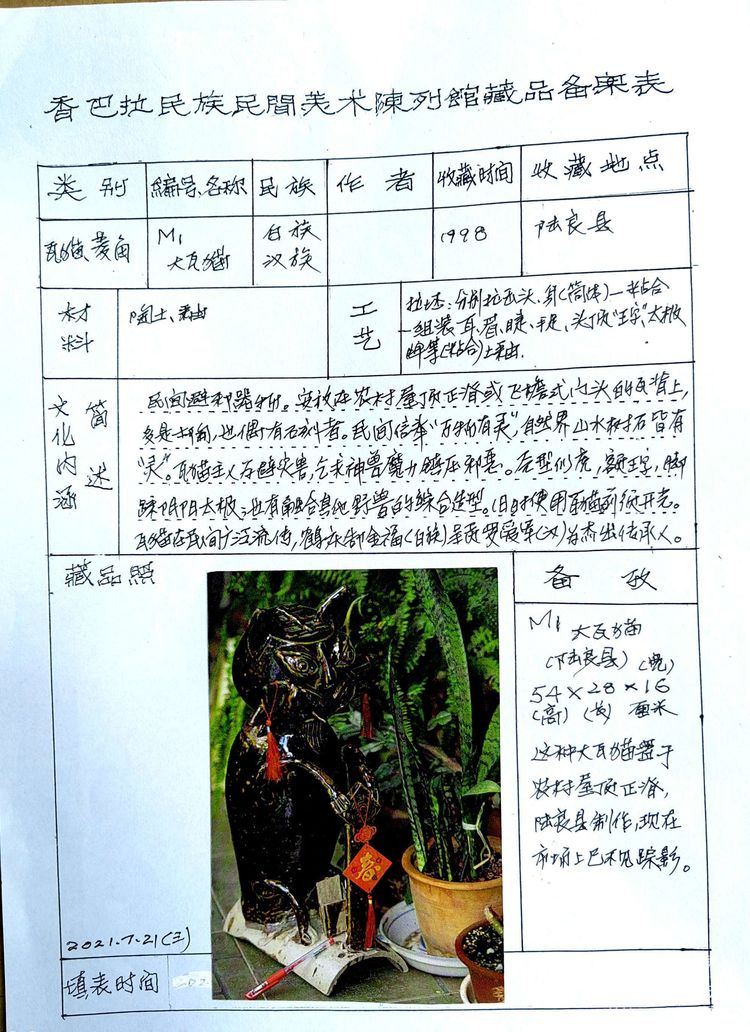 香巴拉民族民間美术陳列館藏品备案表
类别 編号、名称 民族 作者 收藏时间 收藏地点
瓦猫菱角 M1 大瓦猫 白族 汉族 1998 陆良县
材料 陶土、釉 工艺
拉坯:分别拉出头、身(筒体)—粘合
—组装耳、眉、睫、手足、头顶"王字"太极
牌等(粘合)土釉.
文化内涵 简述
民间避邪器物。安放在农村屋顶正脊或飞檐式门头的瓦脊上,
多是 也偶有石料者。民间信奉"万物有灵",自然界山水树石皆有
"灵"。瓦猫主人为避灾害,乞求神兽魔力镇压邪恶。造型似虎,额王字,脚
踩阴阳太极,也有融合其他野兽的綜合造型。旧时使用瓦猫 开光。
瓦猫在民间广泛流传,鹤庆 金福(白族)呈贡罗 (汉)为杰出传承人。
藏品照
备考
M1 大瓦猫
(陆良县)(宽)
54×28×16
(高)(长) 厘米
这种大瓦猫置于
农村屋顶正脊,
陆良县制作,现在
市场上已不见踪影。
春
2021.7.21(三)
填表时间